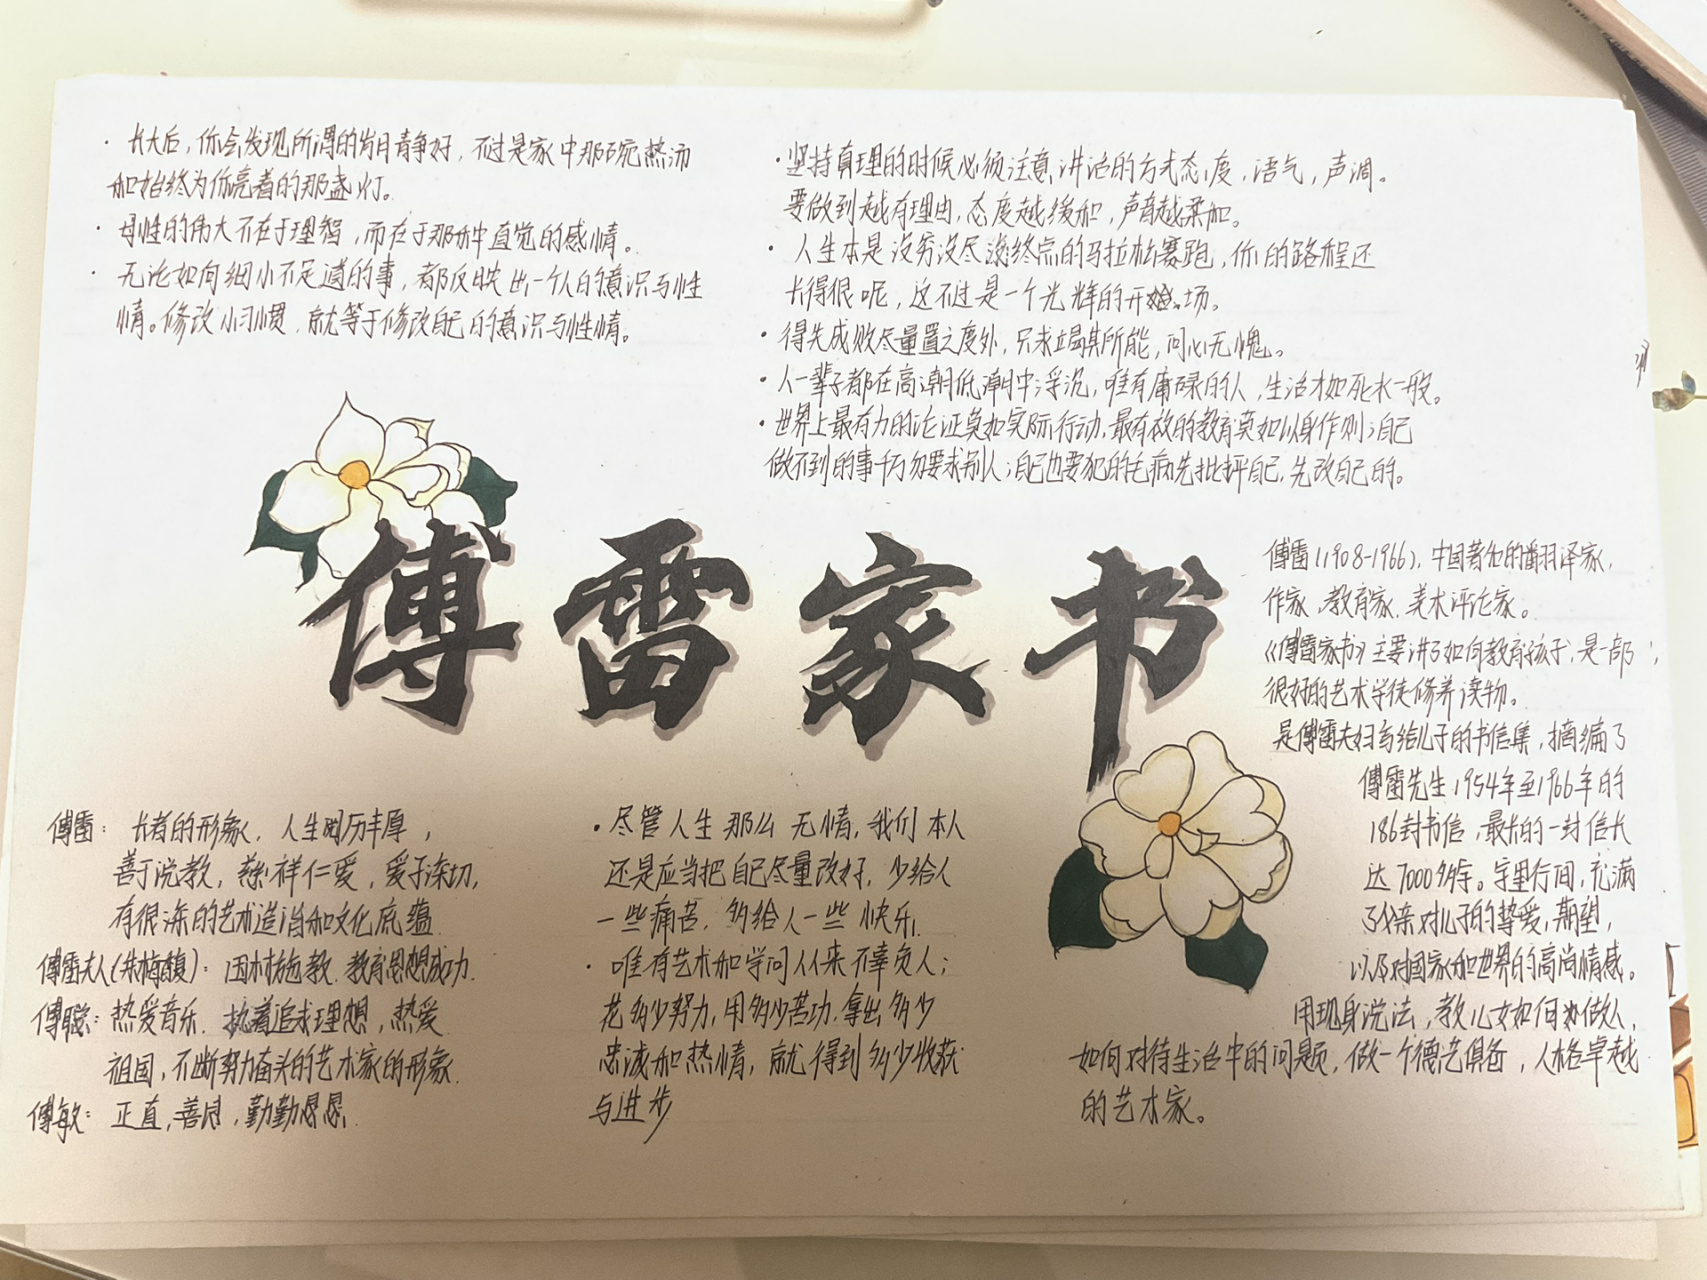 · 长大后，你会发现所谓的岁月静好，不过是家中那碗热汤
和始终为你亮着的那盏灯。
· 母性的伟大不在于理智，而在于那种直觉的感情。
· 无论如何细小不足道的事，都反映出一个人的意识与性
情。修改小习惯，就等于修改自己的意识与性情。
· 坚持真理的时候必须注意讲话的方式态度，语气，声调。
要做到越有理由，态度越缓和，声音越柔和。
· 人生本是没穷没尽没终点的马拉松赛跑，你的路程还
长得很呢，这不过是一个光辉的开始场。
· 得失成败尽量置之度外，只求竭其所能，问心无愧。
· 人一辈子都在高潮低潮中浮沉，唯有庸碌的人，生活才如死水一般。
· 世界上最有力的论证莫如实际行动，最有效的教育莫如以身作则；自己
做不到的事千万勿要求别人；自己也要犯的毛病先批评自己，先改自己的。
傅雷家书
傅雷(1908-1966)，中国著名的翻译家，
作家，教育家，美术评论家。
《傅雷家书》主要讲了如何教育孩子，是一部
很好的艺术学徒修养读物。
是傅雷夫妇写给儿子的书信集，摘编了
傅雷先生1954年至1966年的
186封书信，最长的一封信长
达7000多字。字里行间，充满
了父亲对儿子的挚爱，期望，
以及对国家和世界的高尚情感。
用现身说法，教儿女如何做人，
如何对待生活中的问题，做一个德艺俱备，人格卓越
的艺术家。
傅雷：长者的形象，人生阅历丰厚，
善于说教，慈祥仁爱，爱子深切，
有很深的艺术造诣和文化底蕴
傅雷夫人(朱梅馥)：因材施教，教育思想成功.
傅聪：热爱音乐，执着追求理想，热爱
祖国，不断努力奋头的艺术家的形象.
傅敏：正直，善良，勤勤恳恳.
· 尽管人生那么无情，我们本人
还是应当把自己尽量改好，少给人
一些痛苦，多给人一些快乐.
· 唯有艺术和学问从来不辜负人；
花多少努力，用多少苦功，拿出多少
忠诚和热情，就得到多少收获
与进步